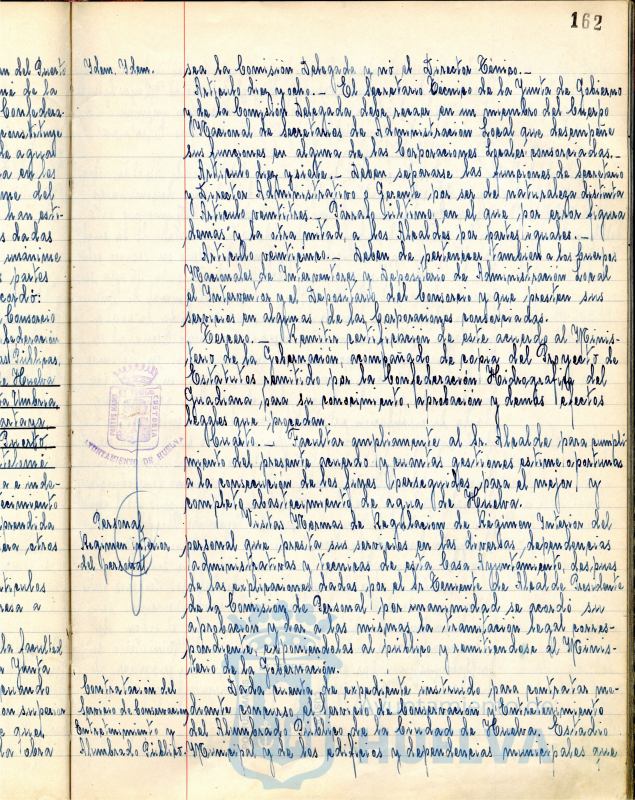 162
Idem. Idem.
sea la Comisión Delegada y no el Director Técnico.-
Artículo diez y ocho.- El Secretario Técnico de la Junta de Gobierno
y de la Comisión Delegada, debe recaer en un miembro del Cuerpo
Nacional de Secretarios de Administración Local que desempeñe
sus funciones en alguna de las Corporaciones Locales consorciadas.-
Artículo diez y siete.- Deben separarse las funciones de Secretario
y Director Administrativo Gerente por ser de naturaleza distinta
Artículo veintitres.- Párrafo último, en el que por error figura
"demás" y la otra mitad, a los Alcaldes por partes iguales.-
Artículo veinticinco.- Deben de pertenecer también a los Cuerpos
Nacionales de Interventores y Depositario de Administración Local
el Interventor y el Depositario del Consorcio y que presten sus
servicios en algunas de las Corporaciones consorciadas.
Tercero.- Remitir certificación de este acuerdo al Minis-
terio de la Gobernación, acompañado de copia del Proyecto de
Estatutos remitido por la Confederación Hidrográfica del
Guadiana para su conocimiento, aprobación y demás efectos
legales que procedan.
Facultar ampliamente al Sr. Alcalde para cumpli-
miento del presente acuerdo y cuantas gestiones estime oportunas
a la consecución de los fines perseguidos para el mejor y
completo abastecimiento de agua de Huelva.
AYUNTAMIENTO DE HUELVA
Personal
Régimen interior
del personal
Vistas Normas de Regulación de Régimen Interior del
personal que presta sus servicios en las diversas dependencias
administrativas y técnicas de esta Casa Ayuntamiento, después
de las explicaciones dadas por el Sr. Teniente de Alcalde Presidente
de la Comisión de Personal, por unanimidad se acordó su
aprobación y dar a las mismas la tramitación legal corres-
pondiente, exponiéndolas al público y remitiéndose al Minis-
terio de la Gobernación.
Contratación del
Servicio de Conservación
Entretenimiento y
Alumbrado Público.
Dada cuenta de expediente instruido para contratar me-
diante concurso el servicio de Conservación y Entretenimiento
del Alumbrado Público de la Ciudad de Huelva, Estadio
Municipal y de los edificios y dependencias municipales que
Ayuntamiento de
HUELVA